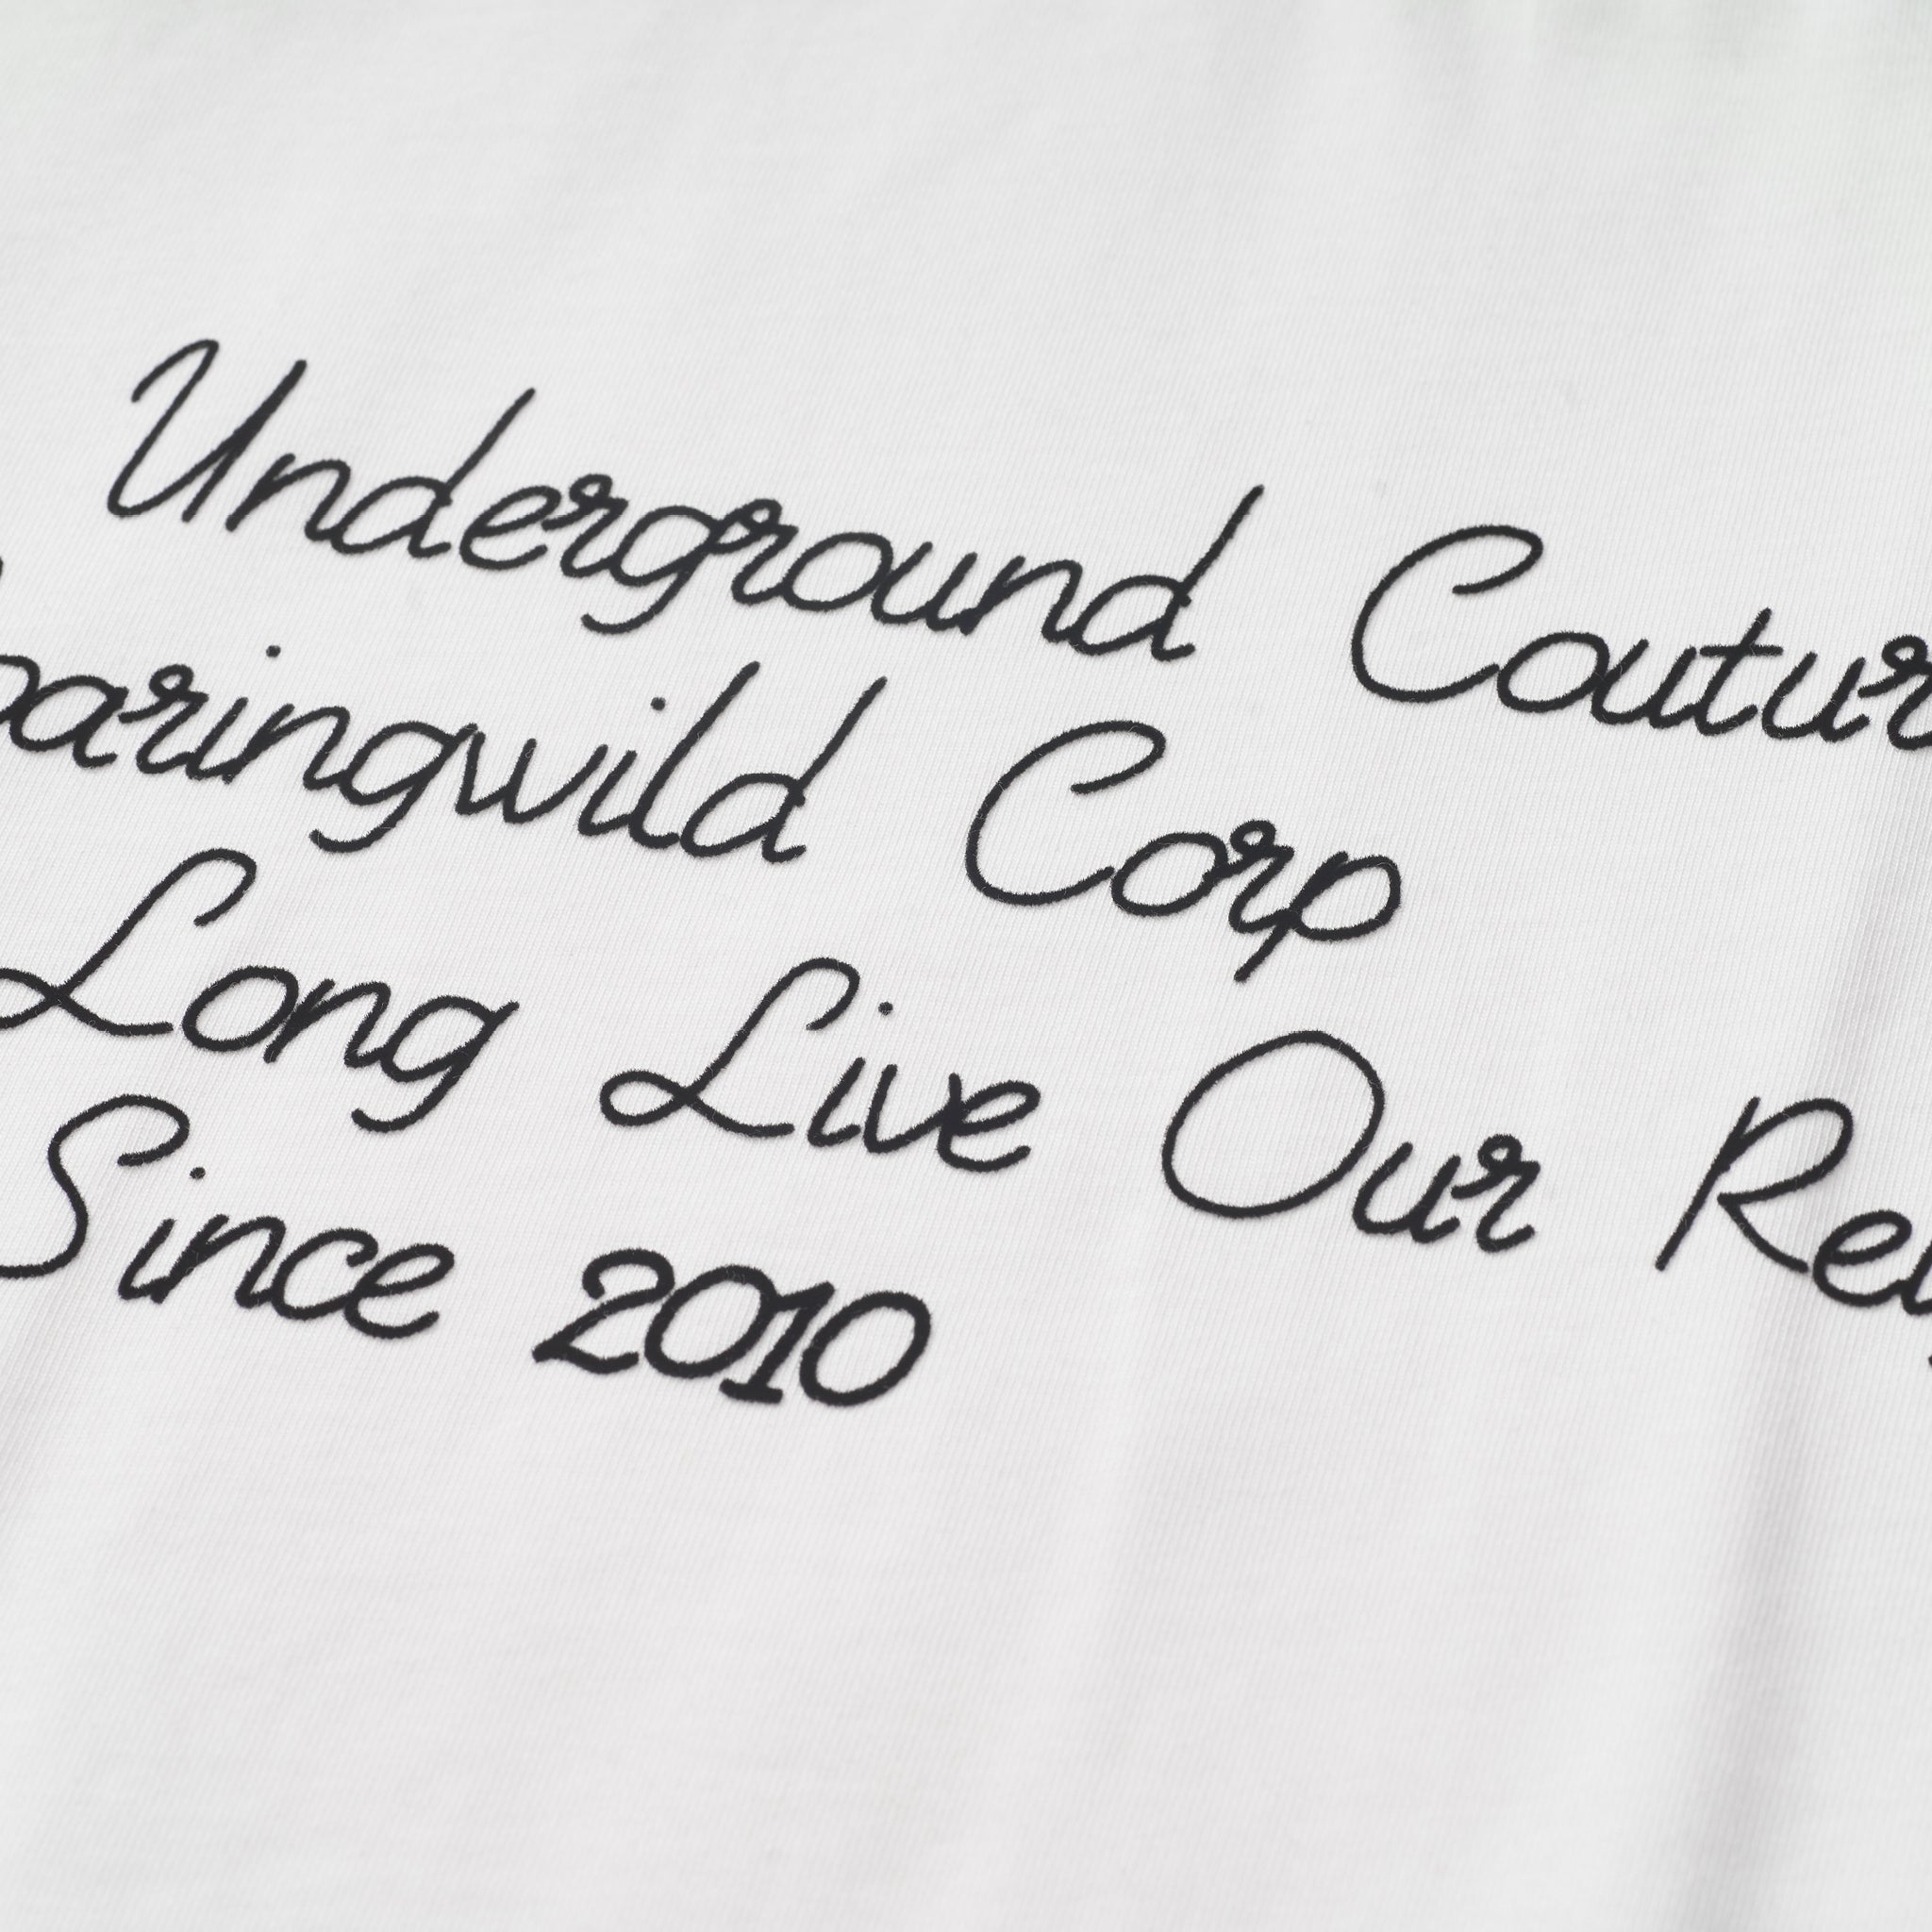 Underground Coutur
aringwild Corp
Long Live Our Re
Since 2010